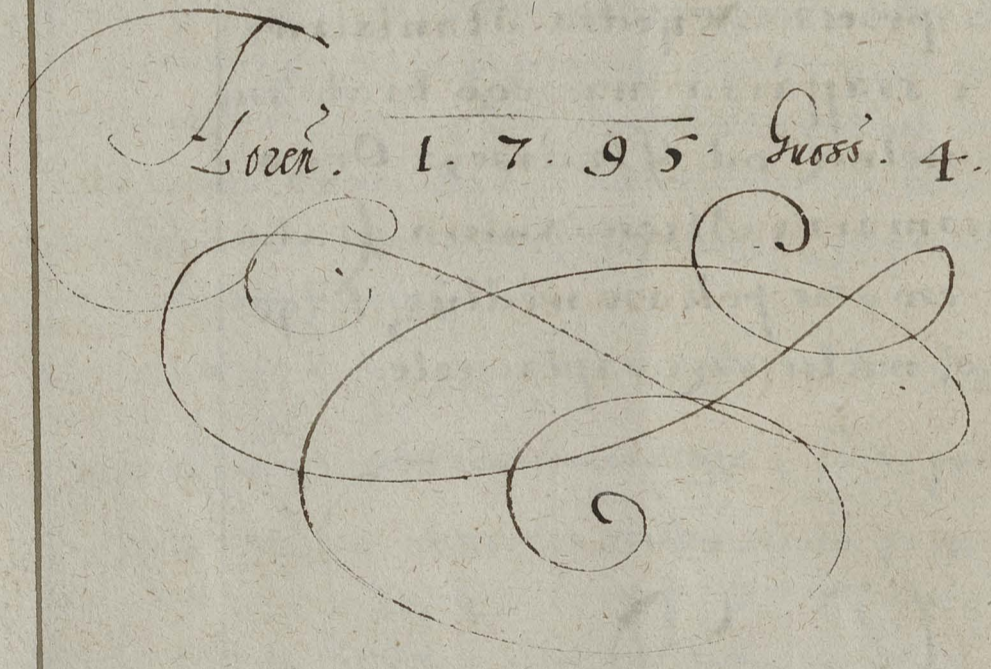 Floren̄. 1. 7. 9 5. Gross. 4.